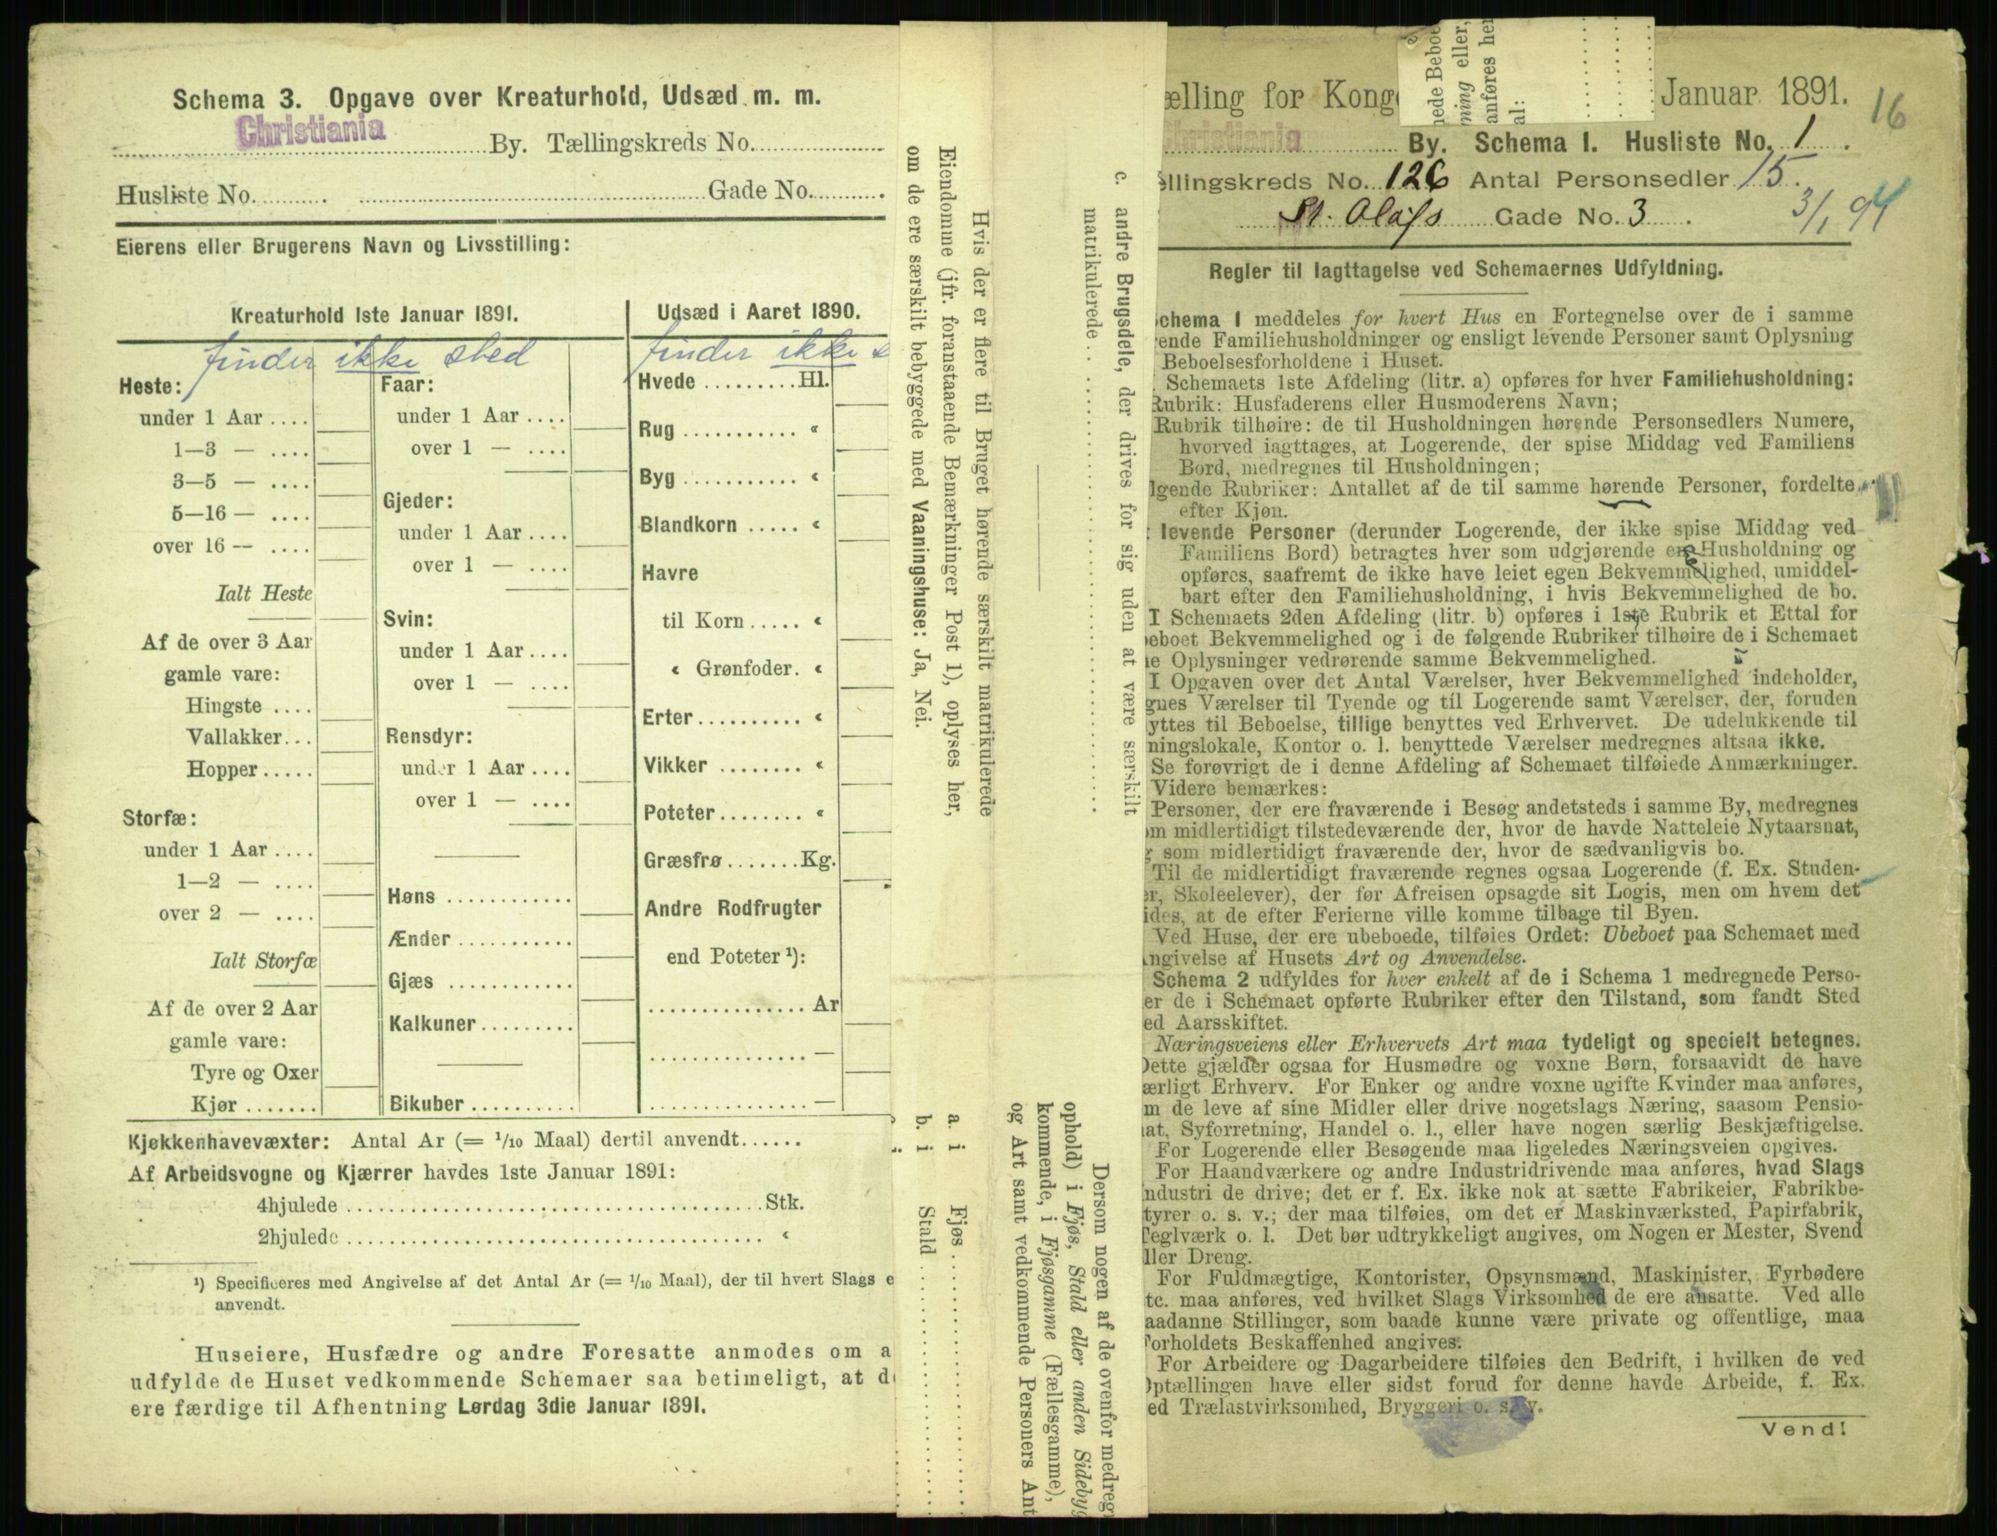 Schema 3. Opgave over Kreaturhold, Udsæd m. m.
Christiania By. Tællingskreds No.
Husliste No. Gade No.
Eierens eller Brugerens Navn og Livsstilling:
Kreaturhold 1ste Januar 1891.
finder ikke sted
Heste:
under 1 Aar
1—3 —
3—5 —
5—16 —
over 16 —
Ialt Heste
Af de over 3 Aar
gamle vare:
Hingste
Vallakker
Hopper
Storfæ:
under 1 Aar
1—2 —
over 2 —
Ialt Storfæ
Af de over 2 Aar
gamle vare:
Tyre og Oxer
Kjør
Faar:
under 1 Aar
over 1 —
Gjeder:
under 1 Aar
over 1 —
Svin:
under 1 Aar
over 1 —
Rensdyr:
under 1 Aar
over 1 —
Høns
Ænder
Gjæs
Kalkuner
Bikuber
Udsæd i Aaret 1890.
finder ikke s
Hvede Hl.
Rug "
Byg "
Blandkorn "
Havre
til Korn "
" Grønfoder. "
Erter "
Vikker "
Poteter "
Græsfrø Kg.
Andre Rodfrugter
end Poteter ¹):
Ar
—
—
Kjøkkenhavevæxter: Antal Ar (= 1/10 Maal) dertil anvendt
Af Arbeidsvogne og Kjærrer havdes 1ste Januar 1891:
4hjulede Stk.
2hjulede "
¹) Specificeres med Angivelse af det Antal Ar (= 1/10 Maal), der til hvert Slags e
anvendt.
Huseiere, Husfædre og andre Foresatte anmodes om a
udfylde de Huset vedkommende Schemaer saa betimeligt, at d
ere færdige til Afhentning Lørdag 3die Januar 1891.
c. andre Brugsdele, der drives for sig uden at være særskilt
matrikulerede
Hvis der er flere til Bruget hørende særskilt matrikulerede
Eiendomme (jfr. foranstaaende Bemærkninger Post 1), oplyses her,
om de ere særskilt bebyggede med Vaaningshuse: Ja, Nei.
Dersom nogen af de ovenfor medregn
ophold) i Fjøs, Stald eller anden Sidebyg
kommende, i Fjøsgamme (Fællesgamme),
og Art samt vedkommende Personers Ant
a. i Fjøs
b. i Stald
nede Beboe
ming eller,
anføres her
al:
ælling for Konge
Januar 1891.
16
Christiania By. Schema I. Husliste No. 1
ællingskreds No. 126 Antal Personsedler 15
St. Olafs Gade No. 3
3/1 91
Regler til Iagttagelse ved Schemaernes Udfyldning.
Schema 1 meddeles for hvert Hus en Fortegnelse over de i samme
rende Familiehusholdninger og ensligt levende Personer samt Oplysning
Beboelsesforholdene i Huset.
Schemaets 1ste Afdeling (litr. a) opføres for hver Familiehusholdning:
Rubrik: Husfaderens eller Husmoderens Navn;
Rubrik tilhøire: de til Husholdningen hørende Personsedlers Numere,
hvorved iagttages, at Logerende, der spise Middag ved Familiens
Bord, medregnes til Husholdningen;
lgende Rubriker: Antallet af de til samme hørende Personer, fordelte
efter Kjøn.
t levende Personer (derunder Logerende, der ikke spise Middag ved
Familiens Bord) betragtes hver som udgjørende en Husholdning og
opføres, saafremt de ikke have leiet egen Bekvemmelighed, umiddel-
bart efter den Familiehusholdning, i hvis Bekvemmelighed de bo.
I Schemaets 2den Afdeling (litr. b) opføres i 1ste Rubrik et Ettal for
beboet Bekvemmelighed og i de følgende Rubriker tilhøire de i Schemaet
ne Oplysninger vedrørende samme Bekvemmelighed.
I Opgaven over det Antal Værelser, hver Bekvemmelighed indeholder,
gnes Værelser til Tyende og til Logerende samt Værelser, der, foruden
yttes til Beboelse, tillige benyttes ved Erhvervet. De udelukkende til
ningslokale, Kontor o. l. benyttede Værelser medregnes altsaa ikke.
Se forøvrigt de i denne Afdeling af Schemaet tilføiede Anmærkninger.
Videre bemærkes:
Personer, der ere fraværende i Besøg andetsteds i samme By, medregnes
om midlertidigt tilstedeværende der, hvor de havde Natteleie Nytaarsnat,
g som midlertidigt fraværende der, hvor de sædvanligvis bo.
Til de midlertidigt fraværende regnes ogsaa Logerende (f. Ex. Studen-
er, Skoleelever), der før Afreisen opsagde sit Logis, men om hvem det
ides, at de efter Ferierne ville komme tilbage til Byen.
Ved Huse, der ere ubeboede, tilføies Ordet: Ubeboet paa Schemaet med
Angivelse af Husets Art og Anvendelse.
Schema 2 udfyldes for hver enkelt af de i Schema 1 medregnede Perso-
er de i Schemaet opførte Rubriker efter den Tilstand, som fandt Sted
ed Aarsskiftet.
Næringsveiens eller Erhvervets Art maa tydeligt og specielt betegnes.
Dette gjælder ogsaa for Husmødre og voxne Børn, forsaavidt de have
ærligt Erhverv. For Enker og andre voxne ugifte Kvinder maa anføres,
m de leve af sine Midler eller drive nogetslags Næring, saasom Pensio-
nat, Syforretning, Handel o. l., eller have nogen særlig Beskjæftigelse.
For Logerende eller Besøgende maa ligeledes Næringsveien opgives.
For Haandværkere og andre Industridrivende maa anføres, hvad Slags
Industri de drive; det er f. Ex. ikke nok at sætte Fabrikeier, Fabrikbe-
tyrer o. s. v.; der maa tilføies, om det er Maskinværksted, Papirfabrik,
Teglværk o. l. Det bør udtrykkeligt angives, om Nogen er Mester, Svend
ller Dreng.
For Fuldmægtige, Kontorister, Opsynsmænd, Maskinister, Fyrbødere
tc. maa anføres, ved hvilket Slags Virksomhed de ere ansatte. Ved alle
aadanne Stillinger, som baade kunne være private og offentlige, maa
Forholdets Beskaffenhed angives.
For Arbeidere og Dagarbeidere tilføies den Bedrift, i hvilken de ved
Optællingen have eller sidst forud for denne havde Arbeide, f. Ex.
ed Trælastvirksomhed, Bryggeri o. s. v.
Vend!